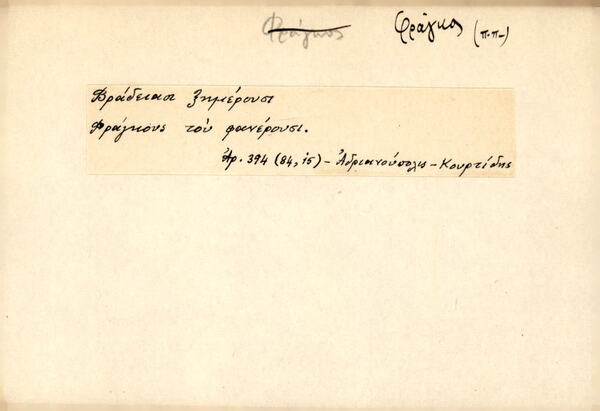 Φράγκος Φράγκος (π.π.)
Βράδειασι ξημέρουσι
Φράγκους τοὺ φανέρουσι.
Ἀρ. 394 (84, 15) - Ἀδριανούπολις - Κουρτίδης